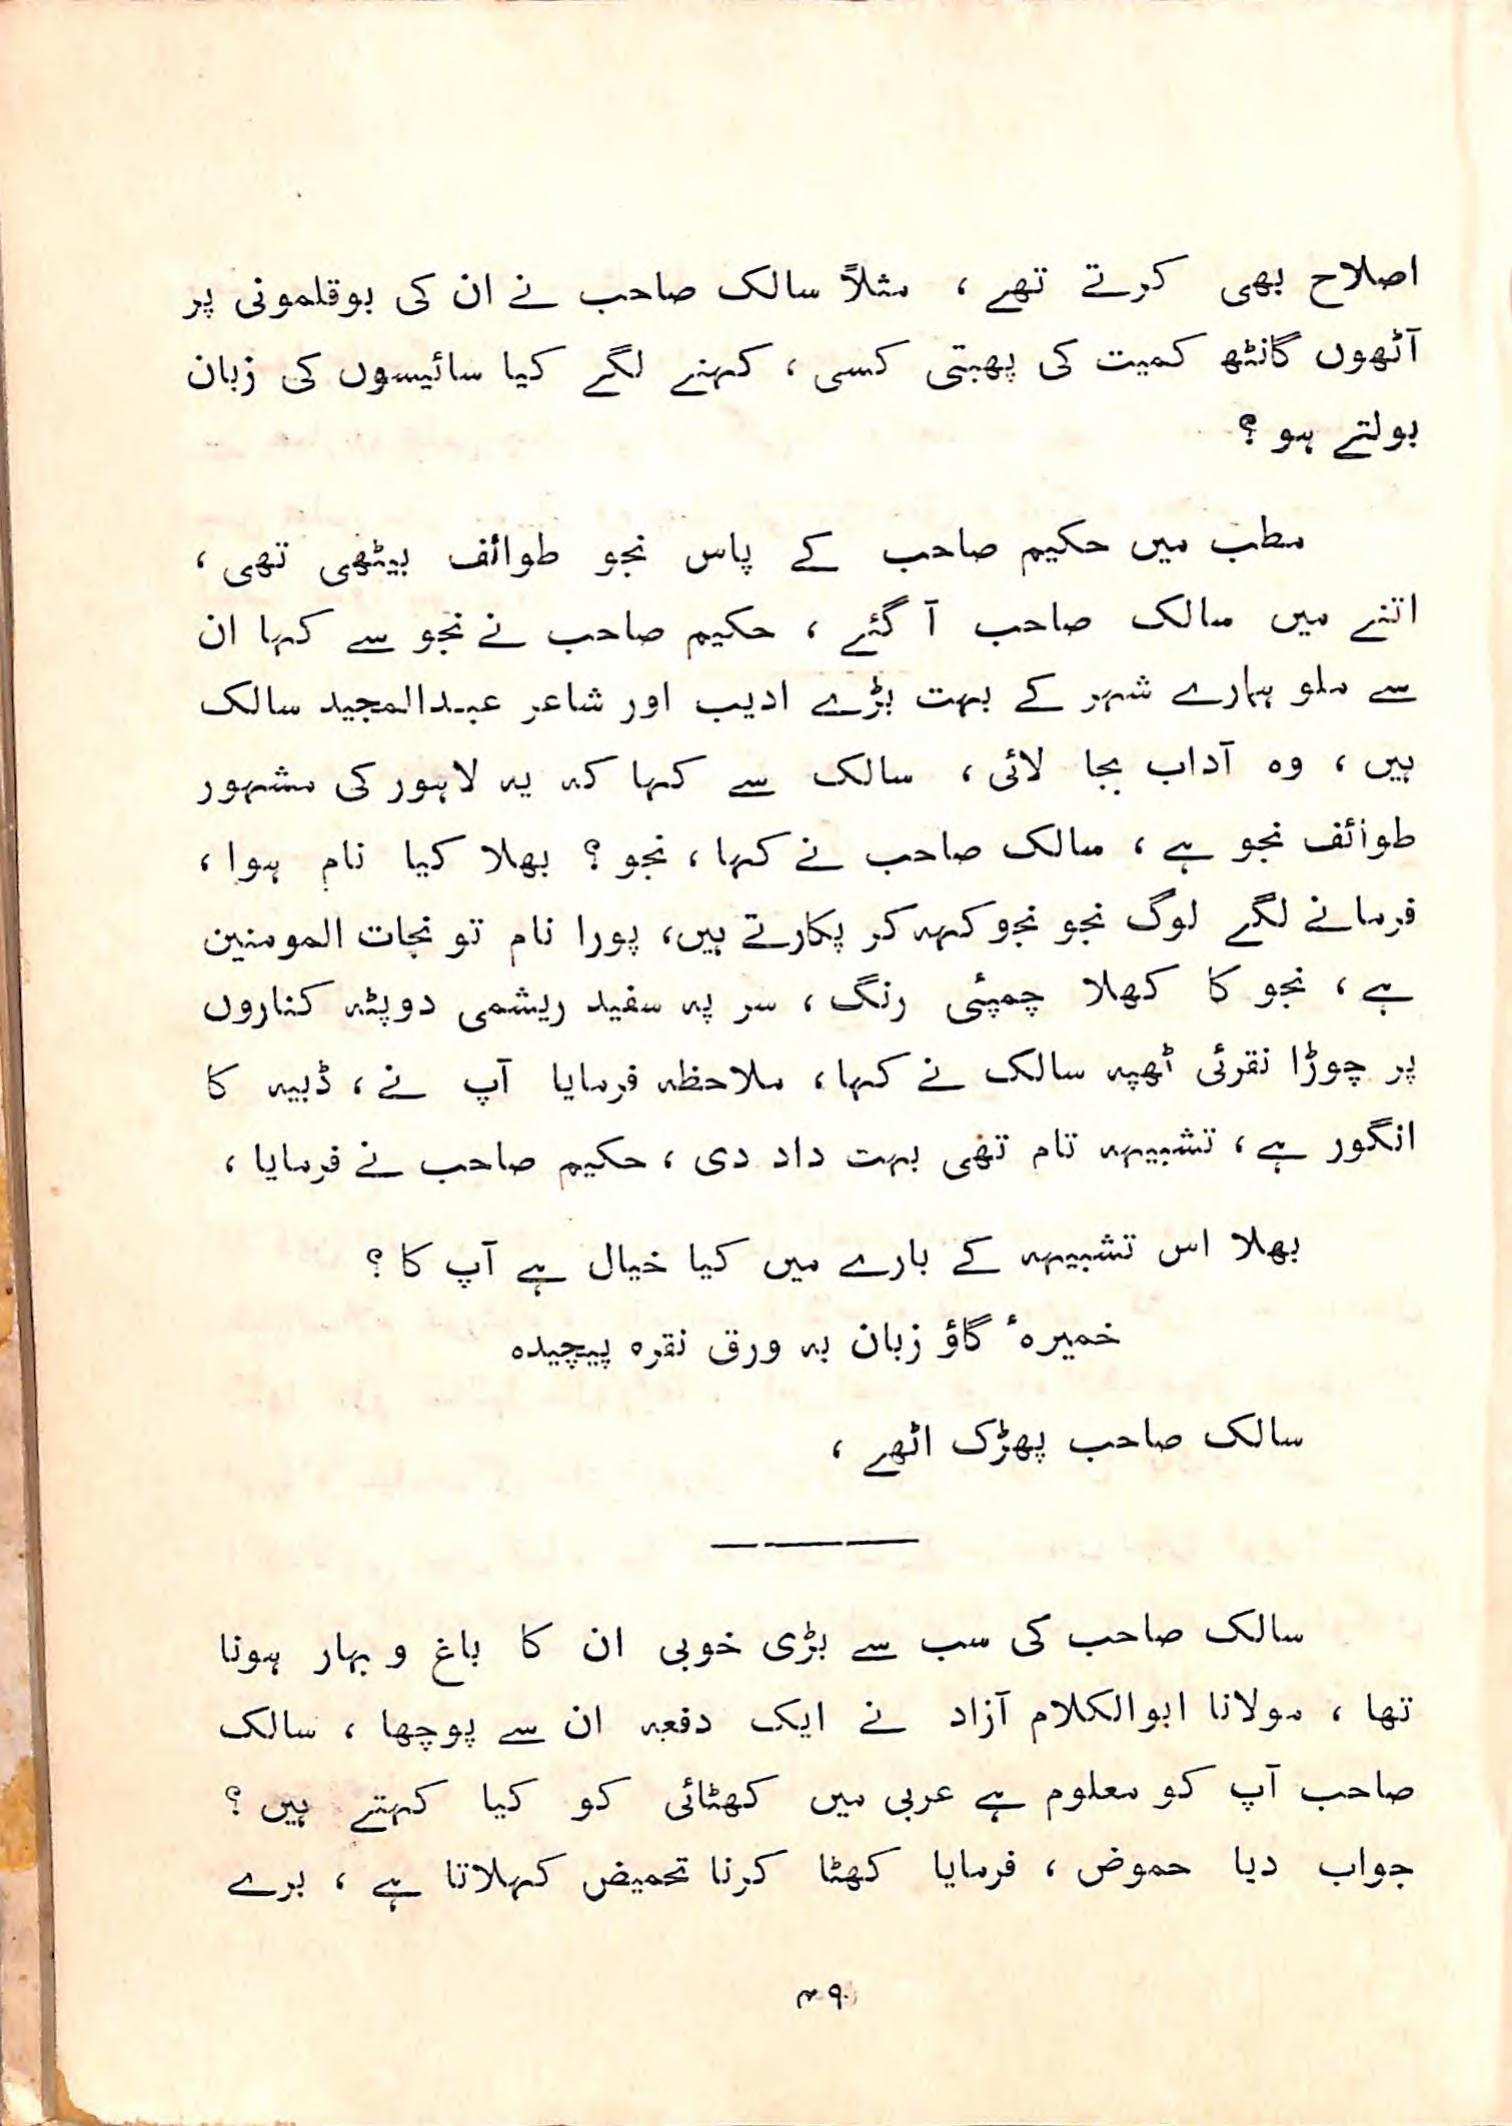 اصلاح بھی کرتے تھے ، مثلاً سالک صاحب نے ان کی بوقلمونی پر
آٹھوں گانٹھ کمیت کی پھبتی کسی ، کہنے لگے کیا سائیسوں کی زبان
بولتے ہو ؟
مطب میں حکیم صاحب کے پاس نجو طوائف بیٹھی تھی ،
اتنے میں سالک صاحب آ گئے ، حکیم صاحب نے نجو سے کہا ان
سے ملو ہمارے شہر کے بہت بڑے ادیب اور شاعر عبدالمجید سالک
ہیں ، وہ آداب بجا لائی ، سالک سے کہا کہ یہ لاہور کی مشہور
طوائف نجو ہے ، سالک صاحب نے کہا ، نجو ؟ بھلا کیا نام ہوا ،
فرمانے لگے لوگ نجو نجو کہہ کر پکارتے ہیں، پورا نام تو نجات المومنین
ہے ، نجو کا کھلا چمپئی رنگ ، سر پہ سفید ریشمی دوپٹہ کناروں
پر چوڑا نقرئی ٹھپہ سالک نے کہا ، ملاحظہ فرمایا آپ نے ، ڈبیہ کا
انگور ہے ، تشبیہہ تام تھی بہت داد دی ، حکیم صاحب نے فرمایا ،
بھلا اس تشبیہہ کے بارے میں کیا خیال ہے آپ کا ؟
خمیرہٴ گاؤ زبان بہ ورق نقرہ پیچیدہ
سالک صاحب پھڑک اٹھے ،
سالک صاحب کی سب سے بڑی خوبی ان کا باغ و بہار ہونا
تھا ، مولانا ابوالکلام آزاد نے ایک دفعہ ان سے پوچھا ، سالک
صاحب آپ کو معلوم ہے عربی میں کھٹائی کو کیا کہتے ہیں ؟
جواب دیا حموض ، فرمایا کھٹا کرنا تحمیض کہلاتا ہے ، برے